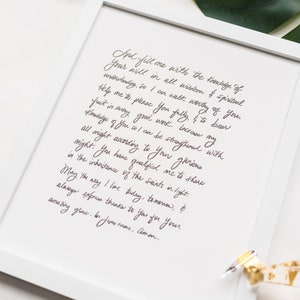 And fill me with the knowledge of
Your will in all wisdom & spiritual
understanding, so I can walk worthy of You.
Help me to please You fully & to bear
fruit in every good work. Increase my
knowledge of You so I can be strengthened with
all might according to Your glorious
might. You have qualified me to share
in the inheritance of the saints in light.
May the way I live today, tomorrow, &
always express thanks to You for Your
amazing grace. In Jesus name, Amen.